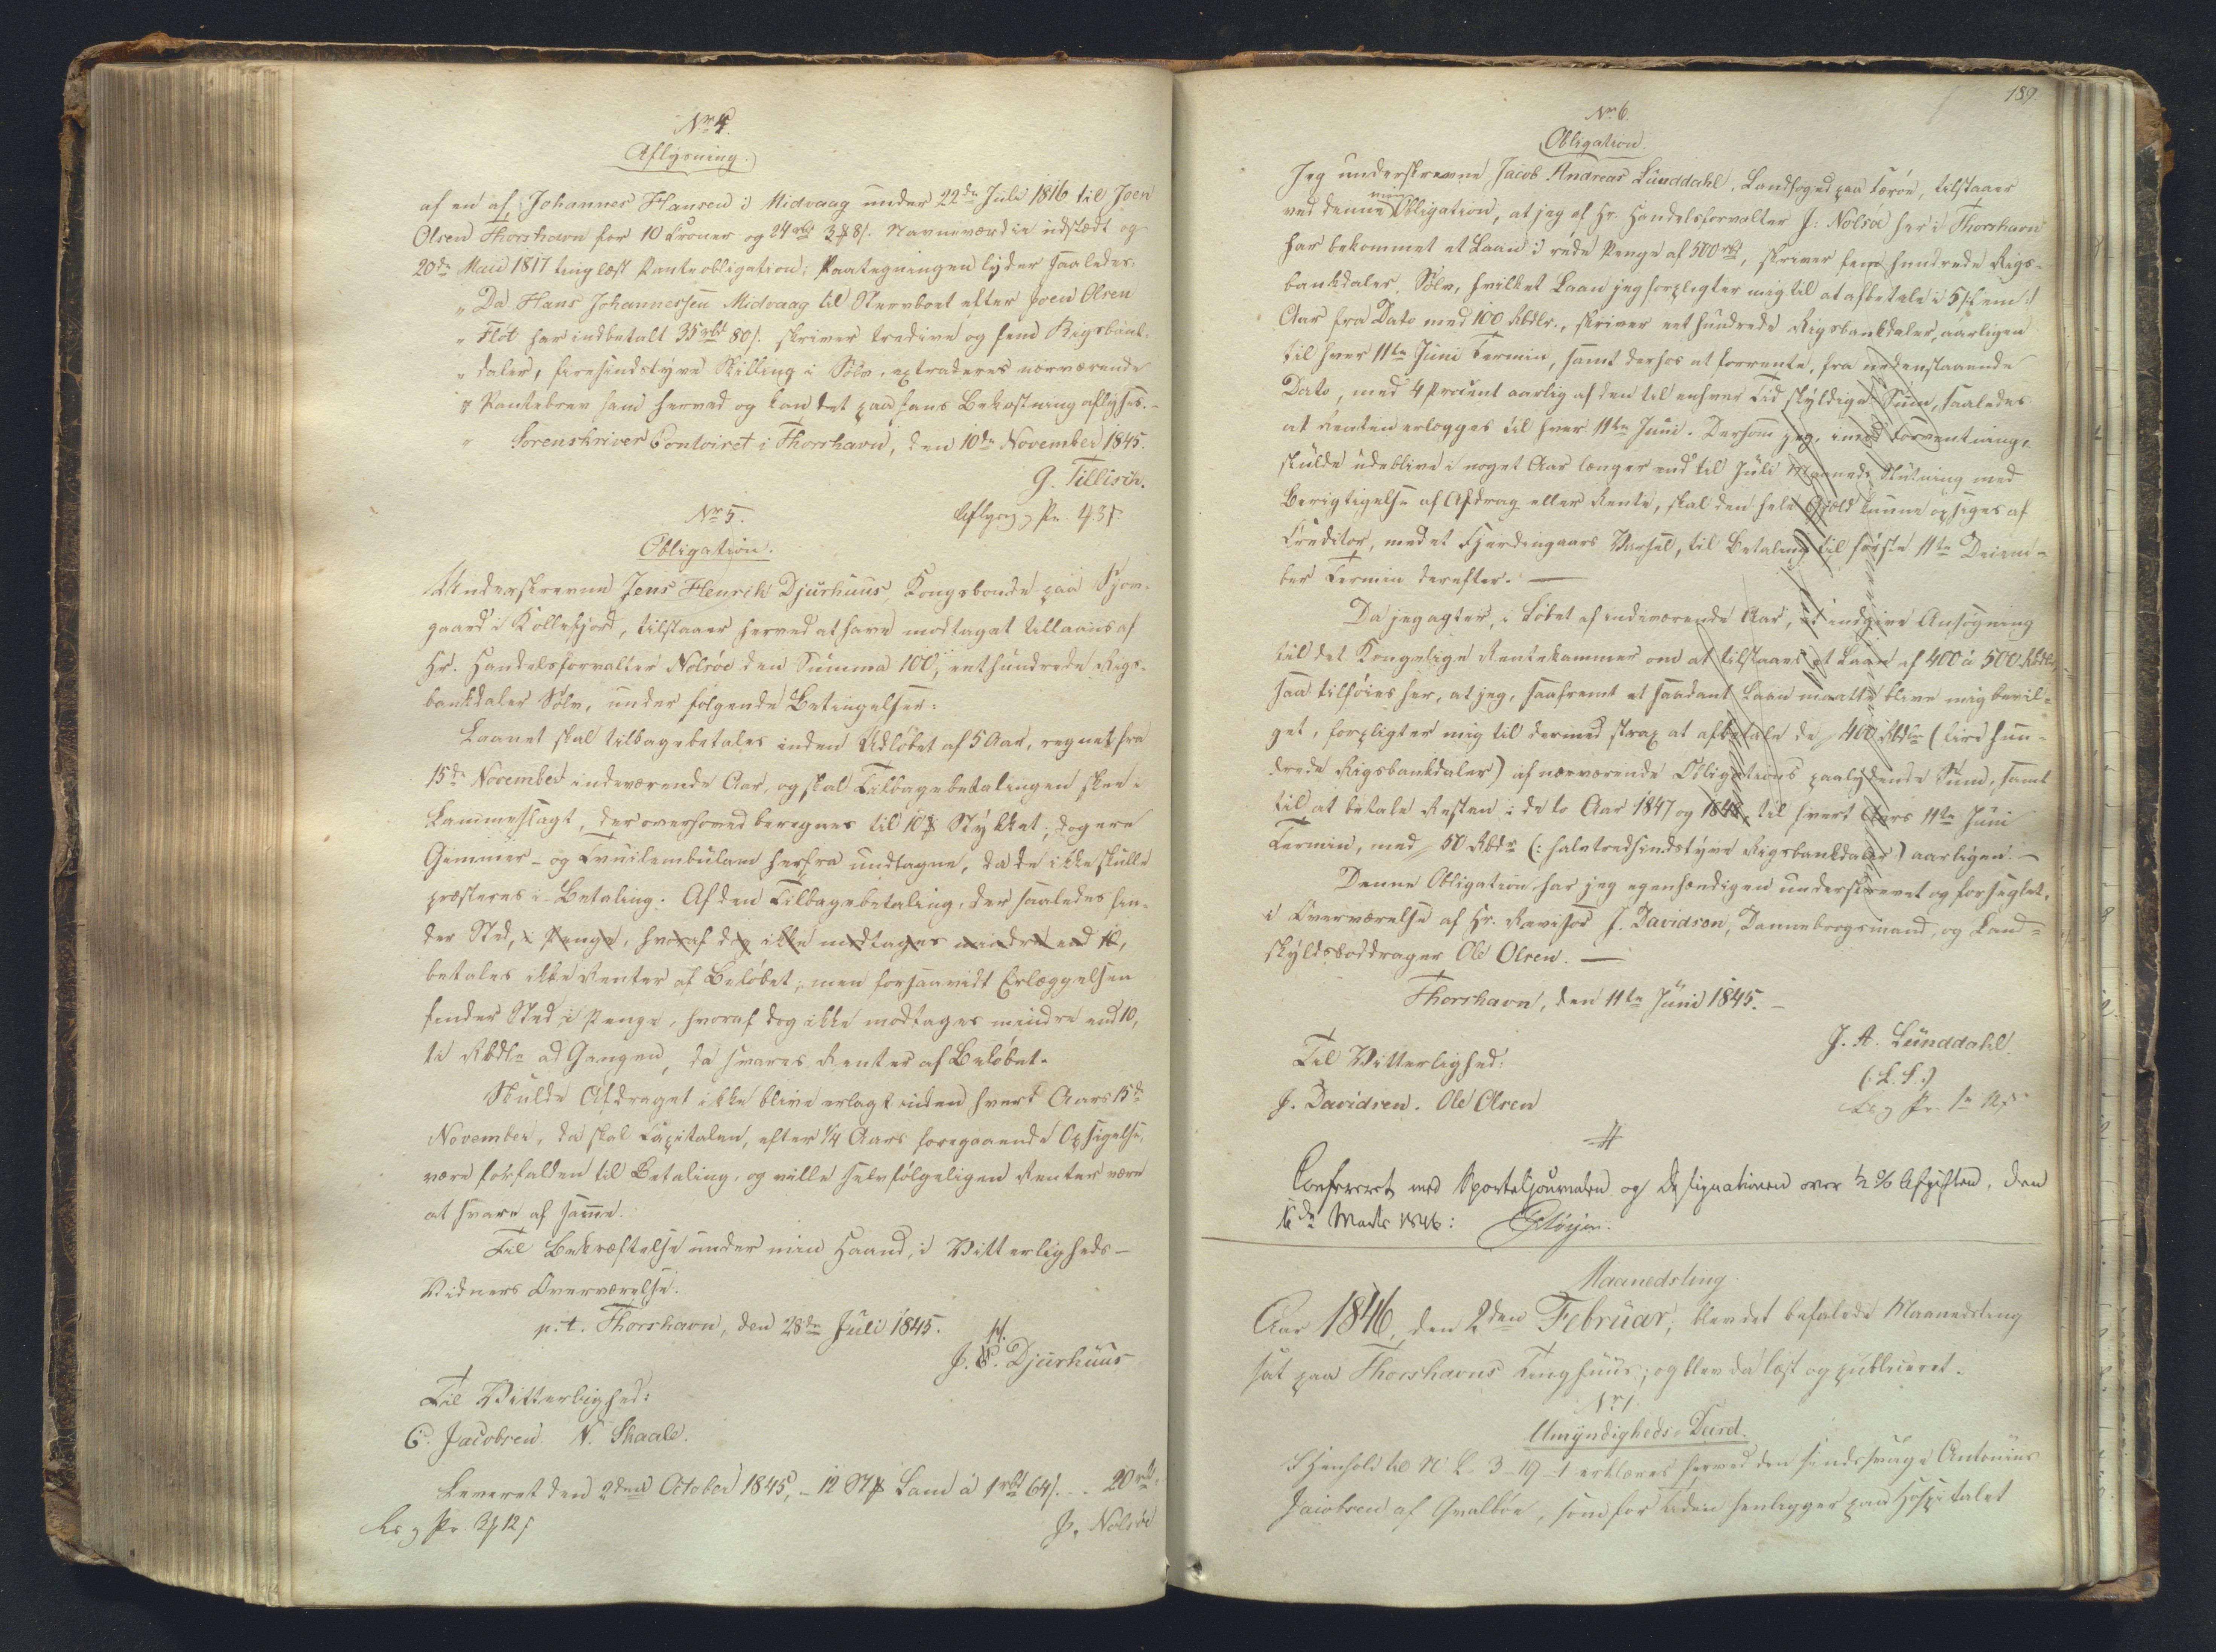 Nr 4.
Aflysning.
af en af Johannes Hansen i Midvaag under 22de Juli 1816 til Joen
Olsen Thorshavn for 10 Kroner og 24 rbd 3 ℔ 8 s. Navneværdie udstædt og
20de Maii 1817 tinglæst Panteobligation; Paategningen lyder saaledes:
„ Da Hans Johannessen Midvaag til Stervboet efter Joen Olsen
„ Flöt har indbetalt 35 rbd 80 s. skriver tredive og fem Rigsbank-
„ daler, firesindstyve Skilling i Sölv, extraderes nærværende
„ Pantebrev ham herved og kan det paa hans Bekostning aflyses. -
„ Sorenskriver Contoiret i Thorshavn, den 10de November 1845.
G. Tillisch.
Nr 5.
Obligation.
Underskrevne Jens Henrik Djurhuus, Kongsbonde paa
gaard i Kollefjord, tilstaaer herved at have modtaget tillaans af
Hr. Handelsforvalter Nolsöe den Summa 100, eethundrede Rigs-
bankdaler Sölv, under fölgende Betingelser:
Laanet skal tilbagebetales inden Udlöbet af 5 Aar, regnet fra
15de November indeværende Aar, og skal Tilbagebetalingen skee i
Lammeslagt, der overhoved beregnes til 10 ℔ Stykket; dog ere
Gimmer- og herfra undtagne, da de ikke skulle
præsteres i Betaling. Af den Tilbagebetaling, der saaledes fin-
der Sted, i Penge, hvoraf dog ikke modtages mindre end 10,
betales ikke Renter af Belöbet; men forsaavidt Erlæggelsen
finder Sted i Penge, hvoraf dog ikke modtages mindre end 10,
ti Rbdlr ad Gangen, da svares Renter af Belöbet.
Skulde Afdraget ikke blive erlagt inden hvert Aars 15de
November, da skal Capitalen, efter 1/4 Aars foregaaende Opsigelse,
være forfalden til Betaling, og ville selvfölgeligen Renter være
at svare af samme.
Til Bekræftelse under min Haand, i Vitterligheds-
Vidners Overværelse.
p.t. Thorshavn, den 28de Juli 1845.
J. H. Djurhuus
Til Vitterlighed:
C. Jacobsen N. Skaale.
Leveret den 2den October 1845, - 12 St Lam à 1 rbd 64 s. .. 20 rbd.
J. Nolsöe
189
Nr. 6.
Obligation.
Jeg underskrevne Jacob Andreas Lunddahl, Landfoged paa Færöe, tilstaaer
ved denne min Obligation, at jeg af Hr. Handelsforvalter J: Nolsöe her i Thorshavn
har bekommet et Laan i rede Penge af 500 rbd, skriver fem hundrede Rigs-
bankdaler Sölv, hvilket Laan jeg forpligter mig til at afbetale i 5 /: fem :/
Aar fra Dato med 100 Rbdlr., skriver eet hundrede Rigsbankdaler, aarligen
til hver 11te Juni Termin, samt derhos at forrente, fra nedenstaaende
Dato, med 4 Procent aarlig af den til enhver Tid skyldige Sum, saaledes
at Renten erlægges til hver 11te Juni. Dersom jeg, imod Forventning,
skulde udeblive i noget Aar længer end til Juli Maaneds Slutning med
Berigtigelse af Afdrag eller Rente, skal den hele Gjæld kunne opsiges af
Creditor, med et Fjerdingaars Varsel, til Betaling til förste 11te Decem-
ber Termin derefter. —
Da jeg agter, i Löbet af indeværende Aar, at indgive Ansögning
til det Kongelige Rentekammer om at tilstaaes et Laan af 400 à 500 Rbdlr,
saa tilföies her, at jeg, saafremt et saadant Laan maatte blive mig bevil-
get, forpligter mig til dermed strax at afbetale de 400 Rbdlr (fire hun-
drede Rigsbankdaler) af nærværende Obligations paalydende Sum, samt
til at betale Resten i de to Aar 1847 og 1848, til hvert Aars 11te Juni
Termin, med 50 Rbdr (: halvtredsindstyve Rigsbankdaler) aarligen. —
Denne Obligation har jeg egenhændigen underskrevet og forseglet,
i Overværelse af Hr. Revisor J. Davidson, Dannebrogsmand, og Land-
skyldsoddrager Ole Olsen. —
Thorshavn, den 11te Juni 1845. -
J. A. Lunddahl.
(: L. S.:)
Til Vitterlighed:
J. Davidsen. Ole Olsen
Confereret med Sporteljournalen og Designationen over 1/2 % Afgiften, den
6de Marts 1846:
Maanedsting.
Aar 1846, den 2den Februar, blev det befalede Maanedsting
sat paa Thorshavns Tinghuus; og blev da læst og publiceret.
Nr 1.
Umyndigheds-Decret.
I Henhold til N. L. 3-19-1 erklæres herved den sindssvage Antonius
Jacobsen af Hvalböe, som for Tiden henligger paa Hospitalet